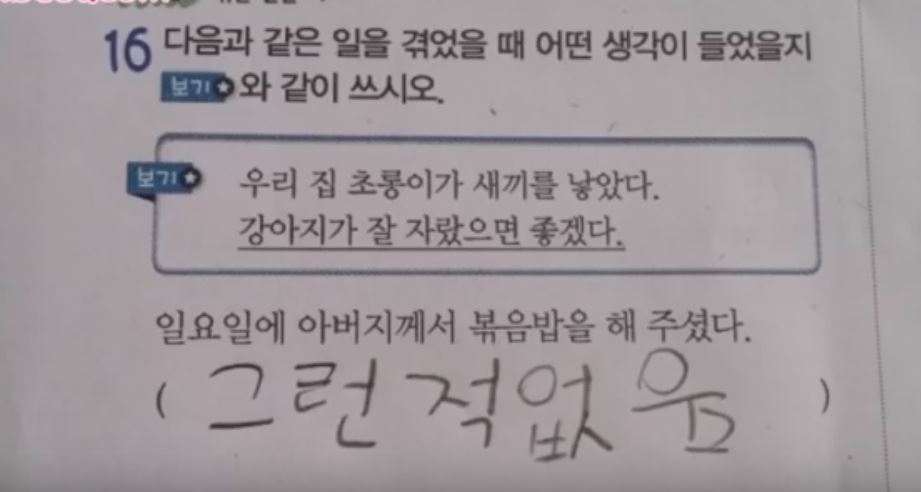 16 다음과 같은 일을 겪었을 때 어떤 생각이 들었을지
보기 와 같이 쓰시오.
보기 우리 집 초롱이가 새끼를 낳았다.
강아지가 잘 자랐으면 좋겠다.
일요일에 아버지께서 볶음밥을 해 주셨다.
( 그런적없음 )